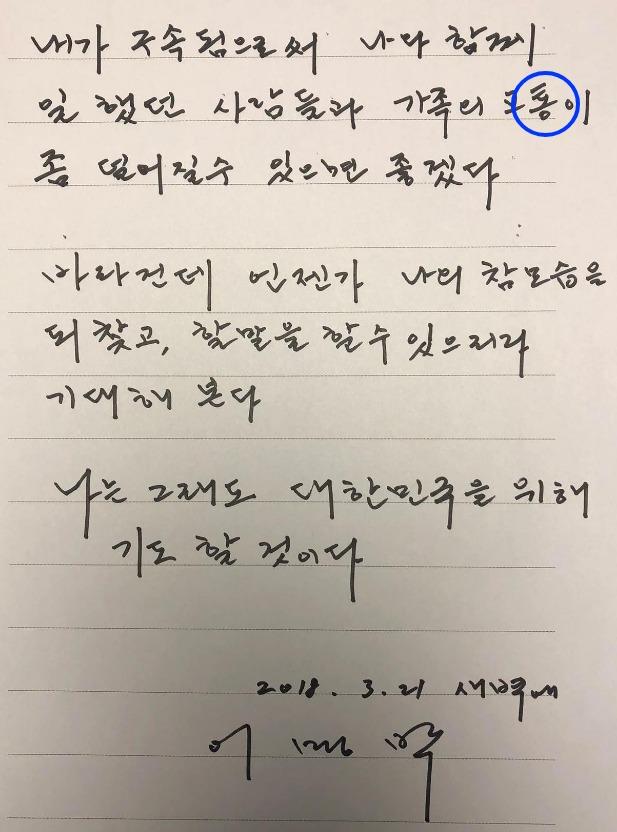 내가 구속됨으로써 나와 함께
일 했던 사람들과 가족의 고통이
좀 덜어질수 있으면 좋겠다
바라건데 언젠가 나의 참모습을
되 찾고, 할말을 할 수 있으리라
기대해 본다
나는 그래도 대한민국을 위해
기도 할 것이다
2018. 3. 21 새벽에
이 명 박